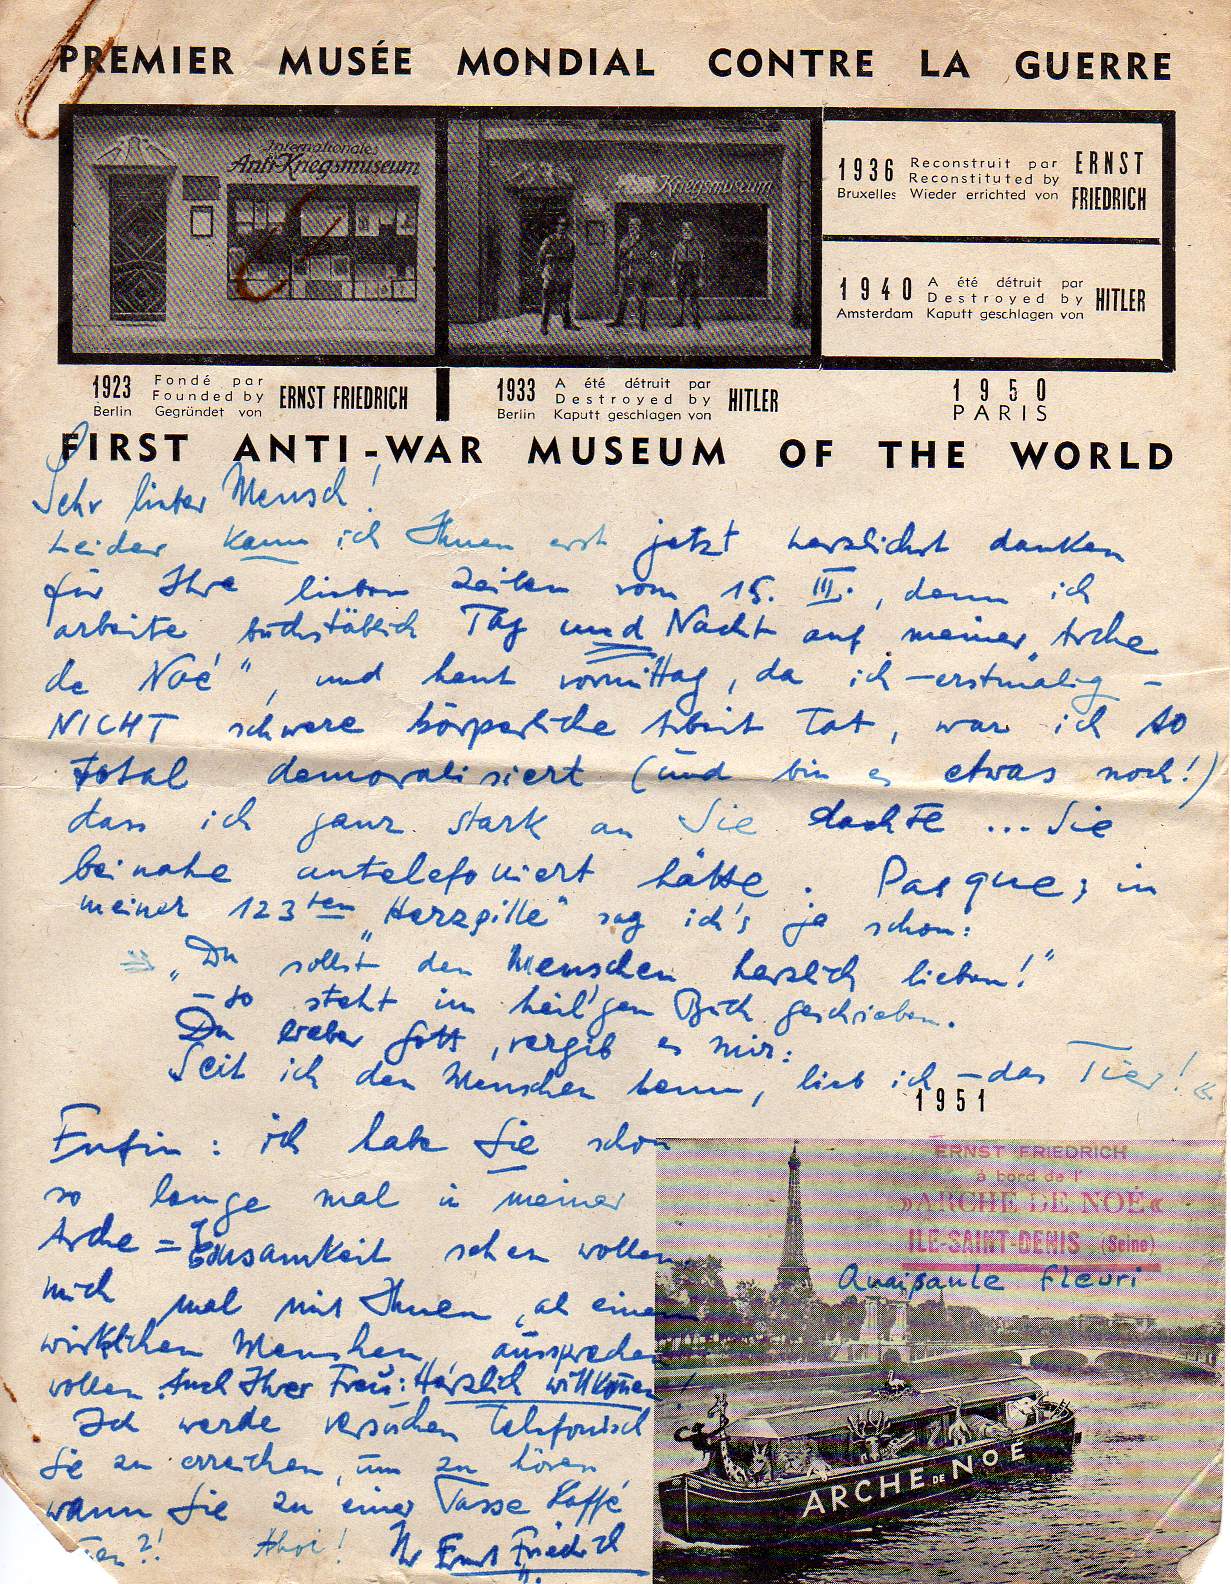 PREMIER MUSÉE MONDIAL CONTRE LA GUERRE
Internationales
Anti-Kriegsmuseum
Kriegsmuseum
1936 Reconstruit par ERNST
Bruxelles Reconstituted by FRIEDRICH
Wieder errichted von
1940 A été détruit par HITLER
Amsterdam Destroyed by
Kaputt geschlagen von
1923 Fondé par ERNST FRIEDRICH
Berlin Founded by
Gegründet von
1933 A été détruit par HITLER
Berlin Destroyed by
Kaputt geschlagen von
1950
PARIS
FIRST ANTI-WAR MUSEUM OF THE WORLD
Sehr lieber Mensch!
Leider kann ich Ihnen erst jetzt herzlichst danken
für Ihre lieben Zeilen vom 15. III., denn ich
arbeite buchstäblich Tag und Nacht auf meiner „Arche
de Noé“, und heut vormittag, da ich – erstmalig –
NICHT schwere körperliche Arbeit tat, war ich so
total demoralisiert (und bin es etwas noch!)
dass ich ganz stark an Sie dachte ... Sie
beinahe antelefoniert hätte. Pasque, in
meiner 123ten „Herzpille“ sag ich's ja schon:
» „Du sollst den Menschen herzlich lieben!“
– so steht im heil'gen Buch geschrieben.
Du lieber Gott, vergib es mir:
Seit ich den Menschen kenn, lieb ich – das Tier! «
1951
Enfin: ich hab Sie schon
so lange mal in meiner
Arche = Einsamkeit sehen wollen
mich mal mit Ihnen, als einem
wirklichen Menschen, aussprechen
wollen. Auch Ihrer Frau: Herzlich willkommen!
Ich werde versuchen telefonisch
Sie zu erreichen, um zu hören,
wann Sie zu einer Tasse Kaffé
Ahoi! Ihr Ernst Friedrich
ERNST FRIEDRICH
à bord de l'
»ARCHE DE NOÉ«
ILE-SAINT-DENIS (Seine)
Fleuri
ARCHE DE NOÉ